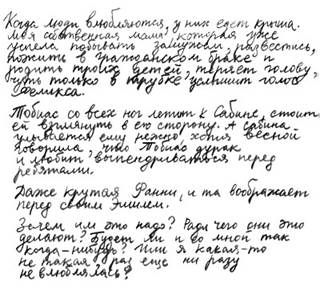 Когда люди влюбляются, у них едет крыша.
Моя собственная мама, которая уже
успела побывать замужем, развестись,
пожить в гражданском браке и
родить троих детей, теряет голову,
чуть только в трубке услышит голос
Феликса.
Тобиас со всех ног летит к Сабине, стоит
ей взглянуть в его сторону. А Сабина
улывается ему нежно, хотя весной
говорила, что Тобиас дурак
и любит выпендриваться перед
ребятами.
Даже крутая Ранни, и та воображает
перед своим Эмилем.
Зачем им это надо? Ради чего они это
делают? Будет ли и со мной так
когда-нибудь? Или я какая-то
не такая, раз ещё ни разу
не влюблялась?